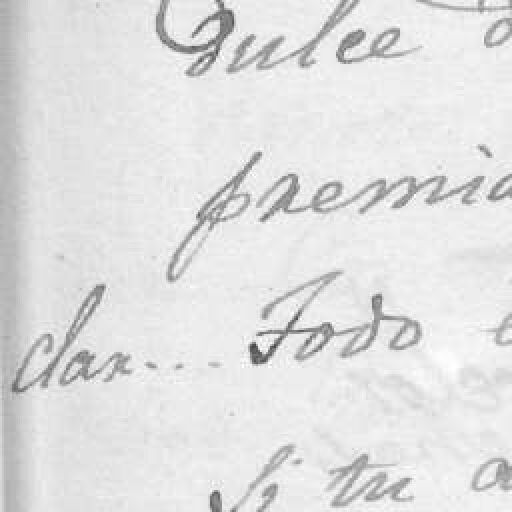 Dulce
premia
clar.... Todo
Si tu